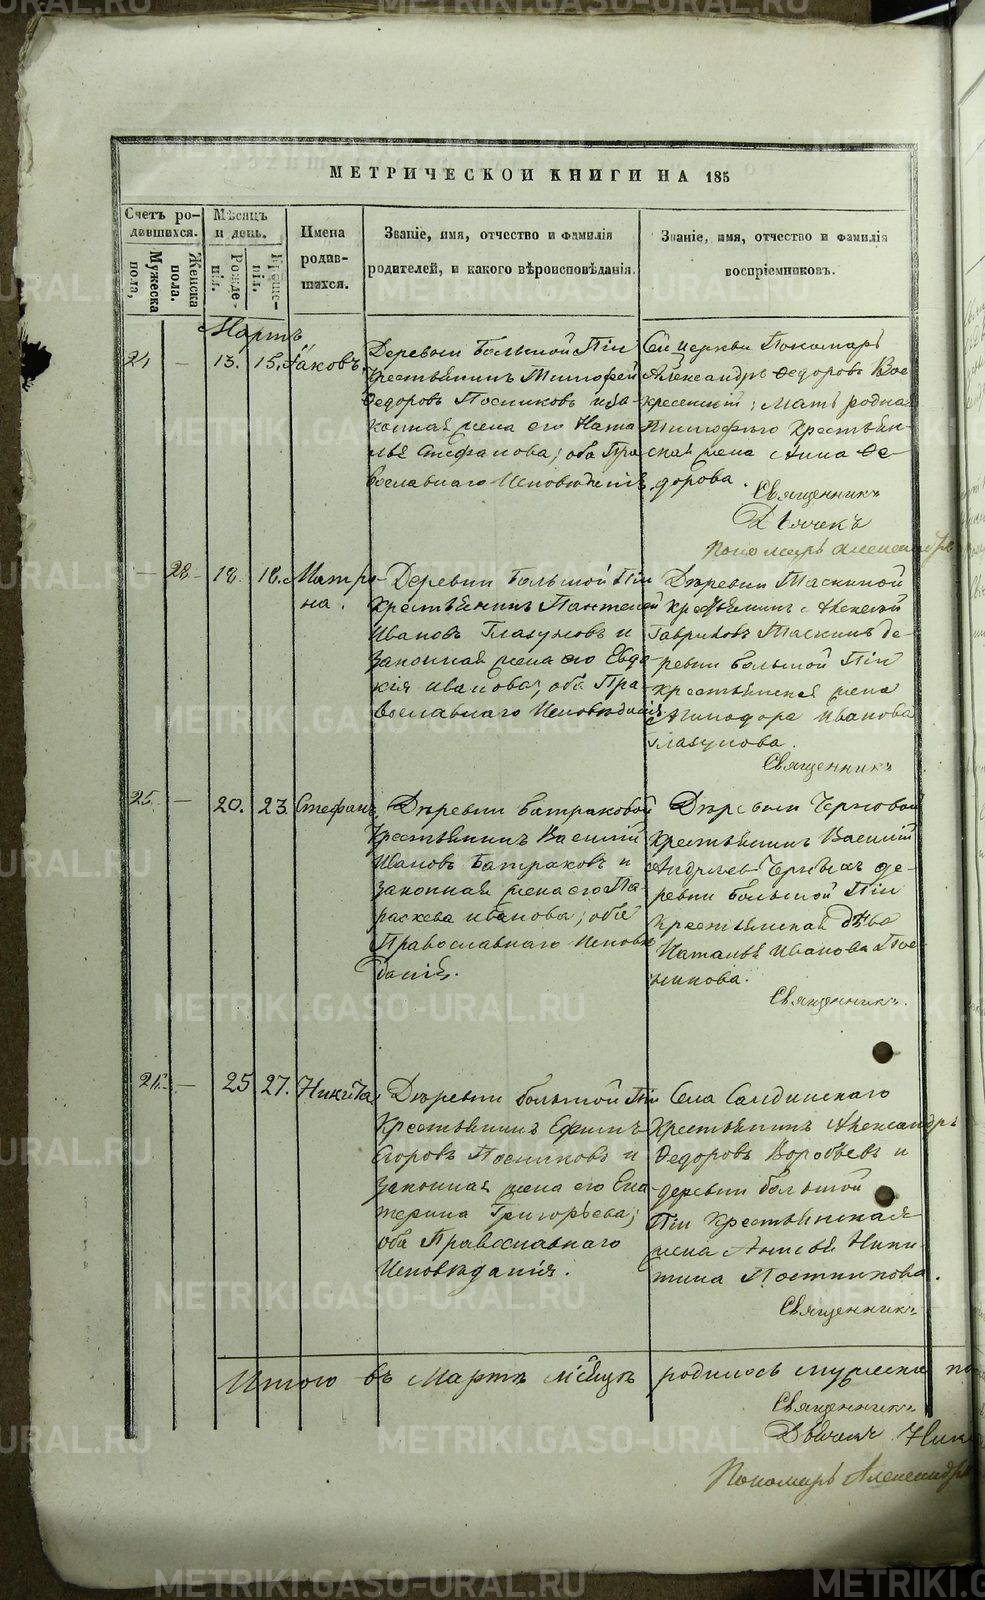 МЕТРИЧЕСКОЙ КНИГИ НА 185
Счетъ ро-
дившихся.
Мужеска пола,
Женска пола.
Мѣсяцъ
и день.
Рожде-
нія.
Креще-
нія.
Имена
родив-
шихся.
Званіе, имя, отчество и фамилія
родителей, и какого вѣроисповѣданія.
Званіе, имя, отчество и фамилія
воспріемниковъ.
Мартъ
24 — 13. 15. Іаковъ.
Деревни Большой Піи
Крестьянинъ Тимофей
Ѳедоровъ Посниковъ и за-
конная жена его Ната-
лья Стефанова; оба Пра-
вославнаго Исповѣданія.
Сей Церкви Пономарь
Александръ Ѳедоровъ Вос-
кресенскій; мать родна
Тимофѣю Крестьян-
ская жена Анна Ѳе-
дорова.
Священникъ
Дьячекъ
Пономарь Александръ
— 28 18. 18. Матро-
на.
Деревни Большой Піи
Крестьянинъ Пантелей
Ивановъ Глазуновъ и
законная жена его Евдо-
кія Иванова; оба Пра-
вославнаго Исповѣданія
Деревни Таскиной
крестьянинъ Алексѣй
Гавриловъ Таскинъ де-
ревни большой Піи
крестьянская жена
Иванова
Глазунова.
Священникъ
25. — 20. 23. Стефанъ
Деревни батраковой
Крестьянинъ Василій
Ивановъ Батраковъ и
законная жена его Па-
раскева Иванова; оба
Православнаго Исповѣ-
данія.
Деревни Черновой
Крестьянинъ Василій
Андреевъ Черныхъ де-
ревни большой Піи
Крестьянская дѣва
Наталья Иванова Пос-
никова.
Священникъ.
26. — 25 27. Никита.
Деревни большой Піи
Крестьянинъ Ефимъ
Егоровъ Посниковъ и
законная жена его Ека-
терина Григорьева;
оба Православнаго
Исповѣданія.
Села Салдинскаго
Крестьянинъ Александръ
Ѳедоровъ Воробьевъ и
деревни большой
Піи Крестьянская
жена Никитина Постникова.
Священникъ
Итого въ Мартѣ мѣсяцѣ родилось мужеска по
Священникъ
Дьячекъ Ник
Пономарь Александръ
METRIKI.GASO-URAL.RU